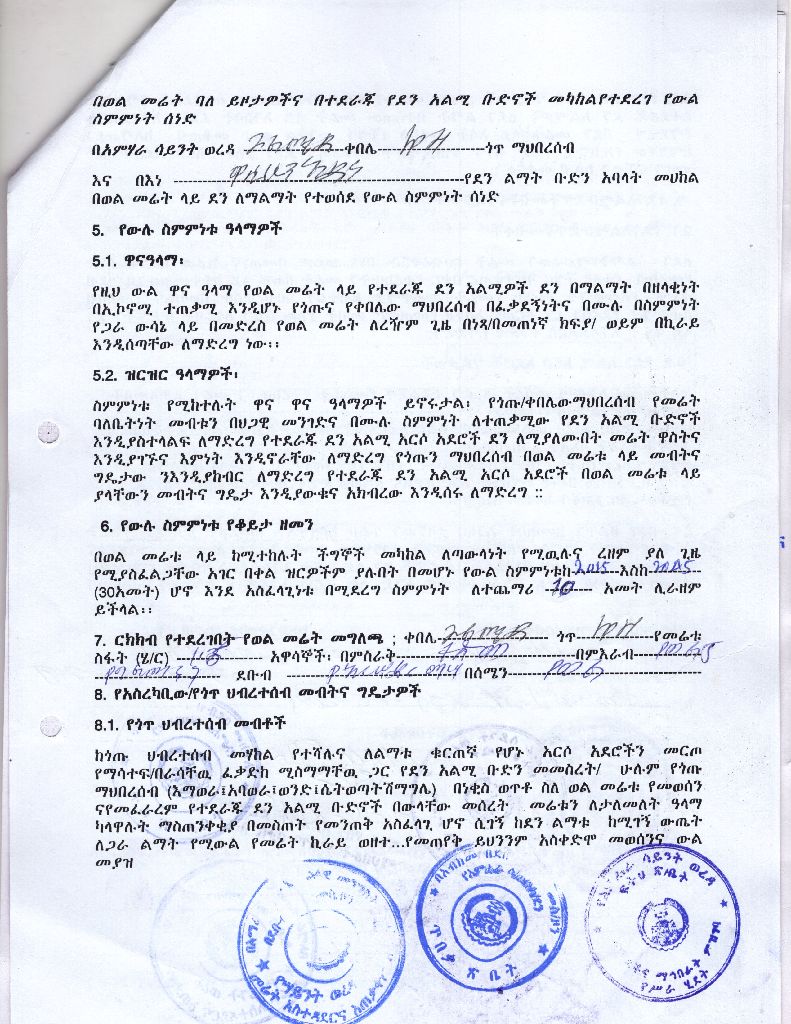 በወል መሬት ባለ ይዞታዎችና በተደራጁ የደን አልሚ ቡድኖች መካከልየተደረገ የውል
ስምምነት ሰነድ
በአምሃራ ሳይንት ወረዳ ቀበሌ ጎጥ ማህበረሰብ
እና በእነ የደን ልማት ቡድን አባላት መሀከል
በወል መሬት ላይ ደን ለማልማት የተወሰደ የውል ስምምነት ሰነድ
5. የውሉ ስምምነቱ ዓላማዎች
5.1. ዋናዓላማ፡
የዚህ ውል ዋና ዓላማ የወል መሬት ላይ የተደራጁ ደን አልሚዎች ደን በማልማት በዘላቂነት
በኢኮኖሚ ተጠቃሚ እንዲሆኑ የጎጡና የቀበሌው ማህበረሰብ በፈቃደኝነትና በሙሉ በስምምነት
የጋራ ውሳኔ ላይ በመድረስ የወል መሬት ለረዥም ጊዜ በነጻ/በመጠነኛ ክፍያ/ ወይም በኪራይ
እንዲሰጣቸው ለማድረግ ነው፡፡
5.2. ዝርዝር ዓላማዎች፡
ስምምነቱ የሚከተሉት ዋና ዋና ዓላማዎች ይኖሩታል፡ የጎጡ/ቀበሌውማህበረሰብ የመሬት
ባለቤትነት መብቱን በህጋዊ መንገድና በሙሉ ስምምነት ለተጠቃሚው የደን አልሚ ቡድኖች
እንዲያስተላልፍ ለማድረግ የተደራጁ ደን አልሚ አርሶ አደሮች ደን ለሚያለሙበት መሬት ዋስትና
እንዲያገኙና እምነት እንዲኖራቸው ለማድረግ የጎጡን ማህበረሰብ በወል መሬቱ ላይ መብትና
ግዴታው ንእንዲያከብር ለማድረግ የተደራጁ ደን አልሚ አርሶ አደሮች በወል መሬቱ ላይ
ያላቸውን መብትና ግዴታ እንዲያውቁና አክብረው እንዲሰሩ ለማድረግ ::
6. የውሉ ስምምነቱ የቆይታ ዘመን
በወል መሬቱ ላይ ከሚተከሉት ችግኞች መካከል ለጣውላነት የሚዉሉና ረዘም ያለ ጊዜ
የሚያስፈልጋቸው አገር በቀል ዝርዎችም ያሉበት በመሆኑ የውል ስምምነቱከ 2015 እስከ 2045
(30አመት) ሆኖ እንደ አስፈላጊነቱ በሚደረግ ስምምነት ለተጨማሪ 10 አመት ሊራዘም
ይችላል፡፡
7. ርክክብ የተደረገበት የወል መሬት መግለጫ ; ቀበሌ ጎጥ የመሬቱ
ስፋት (ሄ/ር) አዋሳኞች፡ በምስራቅ በምእራብ
ደቡብ በሰሜን
8. የአስረካቢው/የጎጥ ህብረተሰብ መብትና ግዴታዎች
8.1. የጎጥ ህብረተሰብ መብቶች
ከጎጡ ህብረተሰብ መሃከል የተሻሉና ለልማቱ ቁርጠኛ የሆኑ አርሶ አደሮችን መርጦ
የማሳተፍ/በራሳቸዉ ፈቃድከ ሚስማማቸዉ ጋር የደን አልሚ ቡድን መመስረት/ ሁሉም የጎጡ
ማህበረሰብ (እማወራ፤አባወራ፤ወንድ፤ሴትወጣትሽማግሌ) በነቂስ ወጥቶ ስለ ወል መሬቱ የመወሰን
ናየመፈራረም የተደራጁ ደን አልሚ ቡድኖች በውላቸው መሰረት መሬቱን ለታለመለት ዓላማ
ካላዋሉት ማስጠንቀቂያ በመስጠት የመንጠቅ አስፈላጊ ሆኖ ሲገኝ ከደን ልማቱ ከሚገኝ ውጤት
ለጋራ ልማት የሚውል የመሬት ኪራይ ወዘተ...የመጠየቅ ይህንንም አስቀድሞ መወሰንና ውል
መያዝ